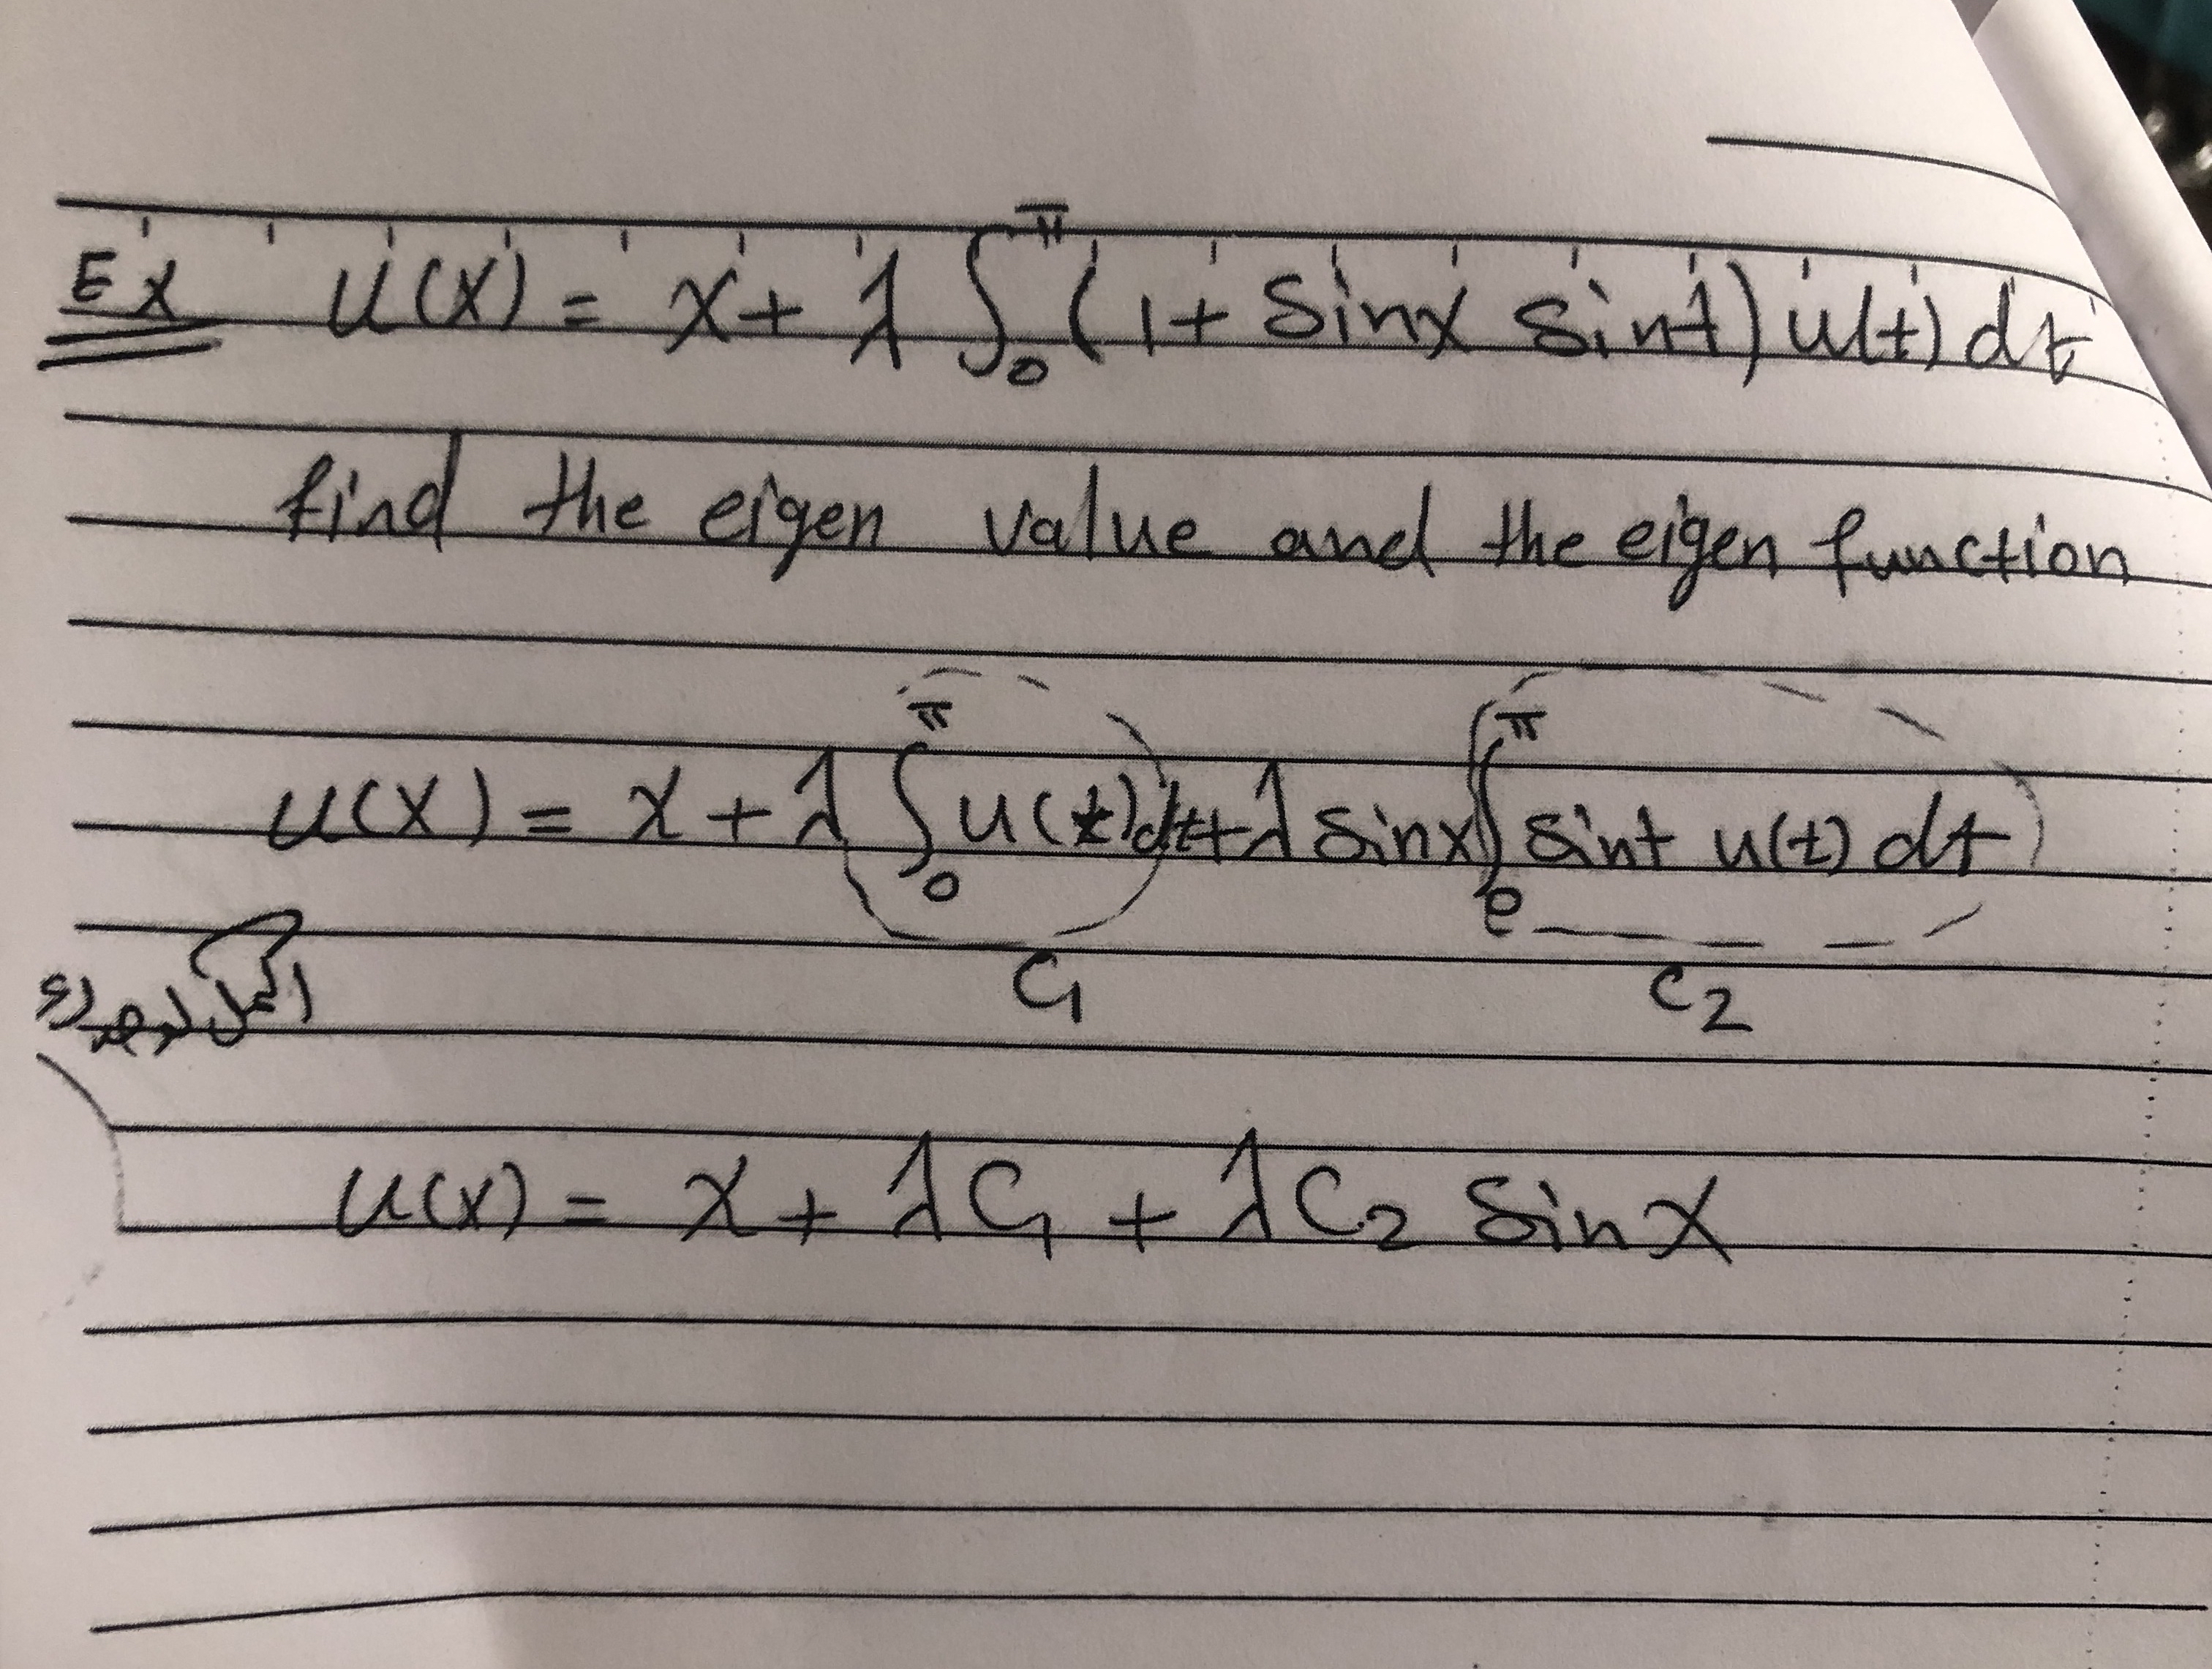 Ex u(x) = x + λ ∫₀^π (1 + sinx sint) u(t) dt
find the eigen value and the eigen function
u(x) = x + λ ∫₀^π u(t)dt + λ sinx ∫₀^π sint u(t) dt
C₁ C₂
اكمل
u(x) = x + λC₁ + λC₂ sinx